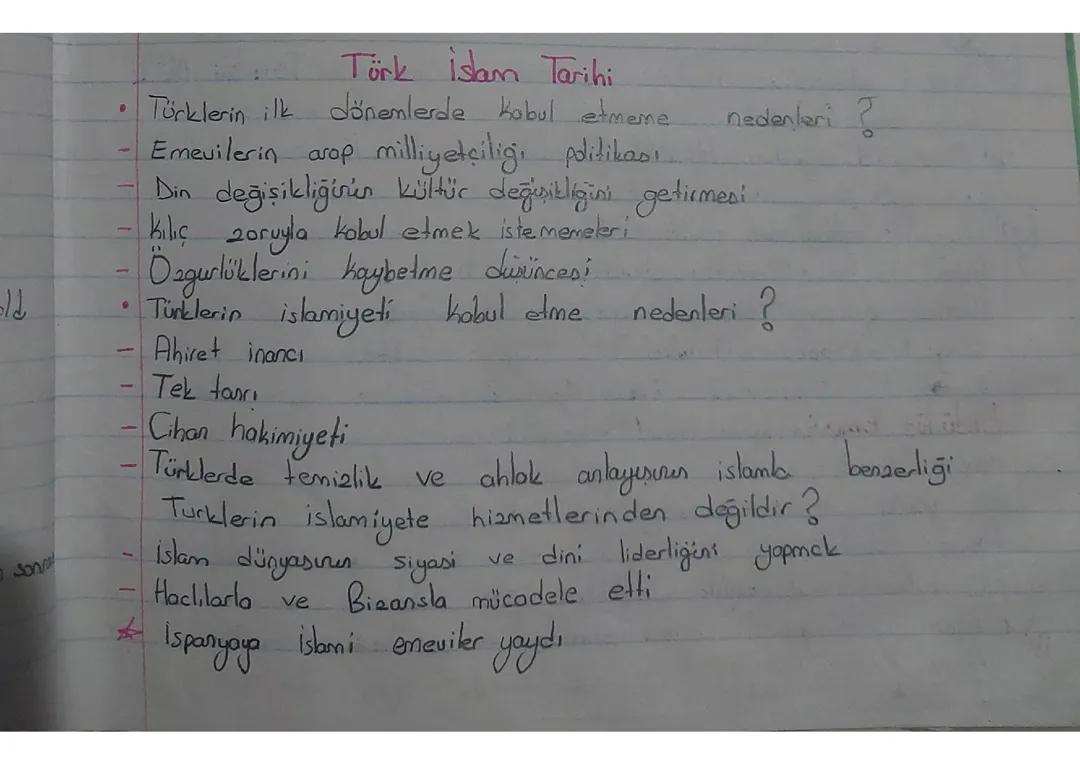 Türk İslam Tarihi
• Türklerin ilk dönemlerde kabul etmeme nedenleri ?
- Emevilerin arap milliyetçiliği politikası
- Din değişikliğinin kültür değişikliğini getirmesi
- Kılıç zoruyla kabul etmek istememeleri
- Özgurlüklerini kaybetme düşüncesi
• Türklerin islamiyeti kabul etme nedenleri ?
- Ahiret inancı
- Tek tanrı
- Cihan hakimiyeti
- Türklerde temizlik ve ahlak anlayışının islamla benzerliği
Turklerin islamiyete hizmetlerinden değildir ?
- islam dünyasının siyasi ve dini liderliğini yapmak
- Haclılarla ve Bizansla mücadele etti
☆ ispanyaya islami emeviler yaydı